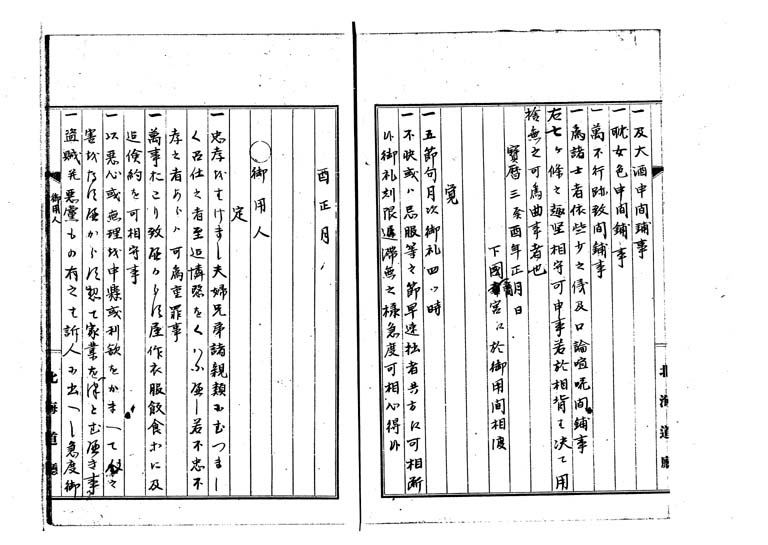 一及大酒申間鋪事
一耽女色申間鋪事
一萬不行跡致間鋪事
一為諸士者依些少之儀及口論喧呪間鋪事
右七ヶ條之趣堅相守可申事若於相背は決て用
捨無之可為曲事者也
寳暦三癸酉年正月日
下國 宮江於御用間相渡
覚
一五節句月次御礼四ッ時
一不快或ハ忌服等之節早速拙者共方江可相断
外御礼刻限遅滞無之様急度可相心得外
酉正月
○御用人
定
一忠孝をはけまし夫婦兄弟諸親類にむつまし
く召仕之者至迄憐愍をくわふへし若不忠不
孝之者あらハ可為重罪事
一萬事おこり致へからす屋作衣服飲食等に及
迄倹約を可相守事
一以悪心或無理を申懸或利欲をかまへて人を
害をなすへからす惣て家業をつとむへき事
一盗賊并悪黨もの有之は訴人に出へし急度御
御用人
北海道廳
北海道廳